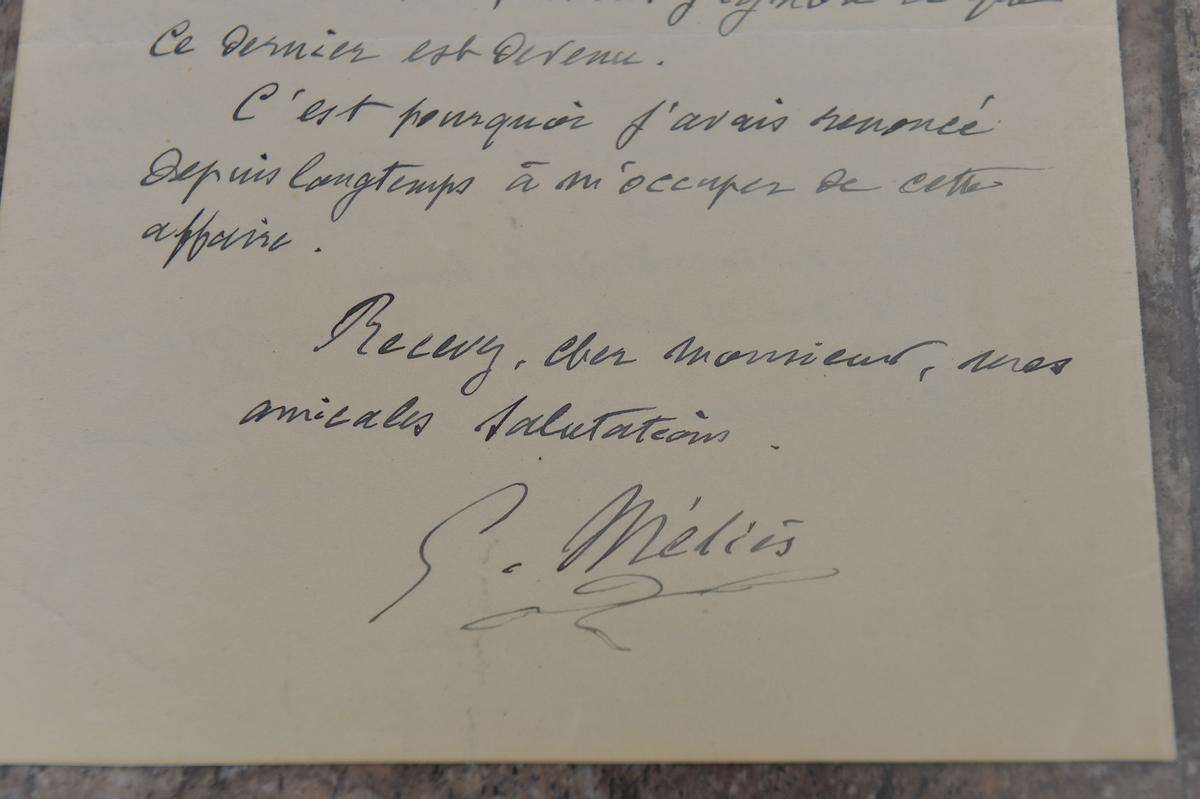 ce que
Ce dernier est devenu.
C'est pourquoi j'avais renoncé
depuis longtemps à m'occuper de cette
affaire.
Recevez, cher monsieur, mes
amicales salutations.
G. Méliès